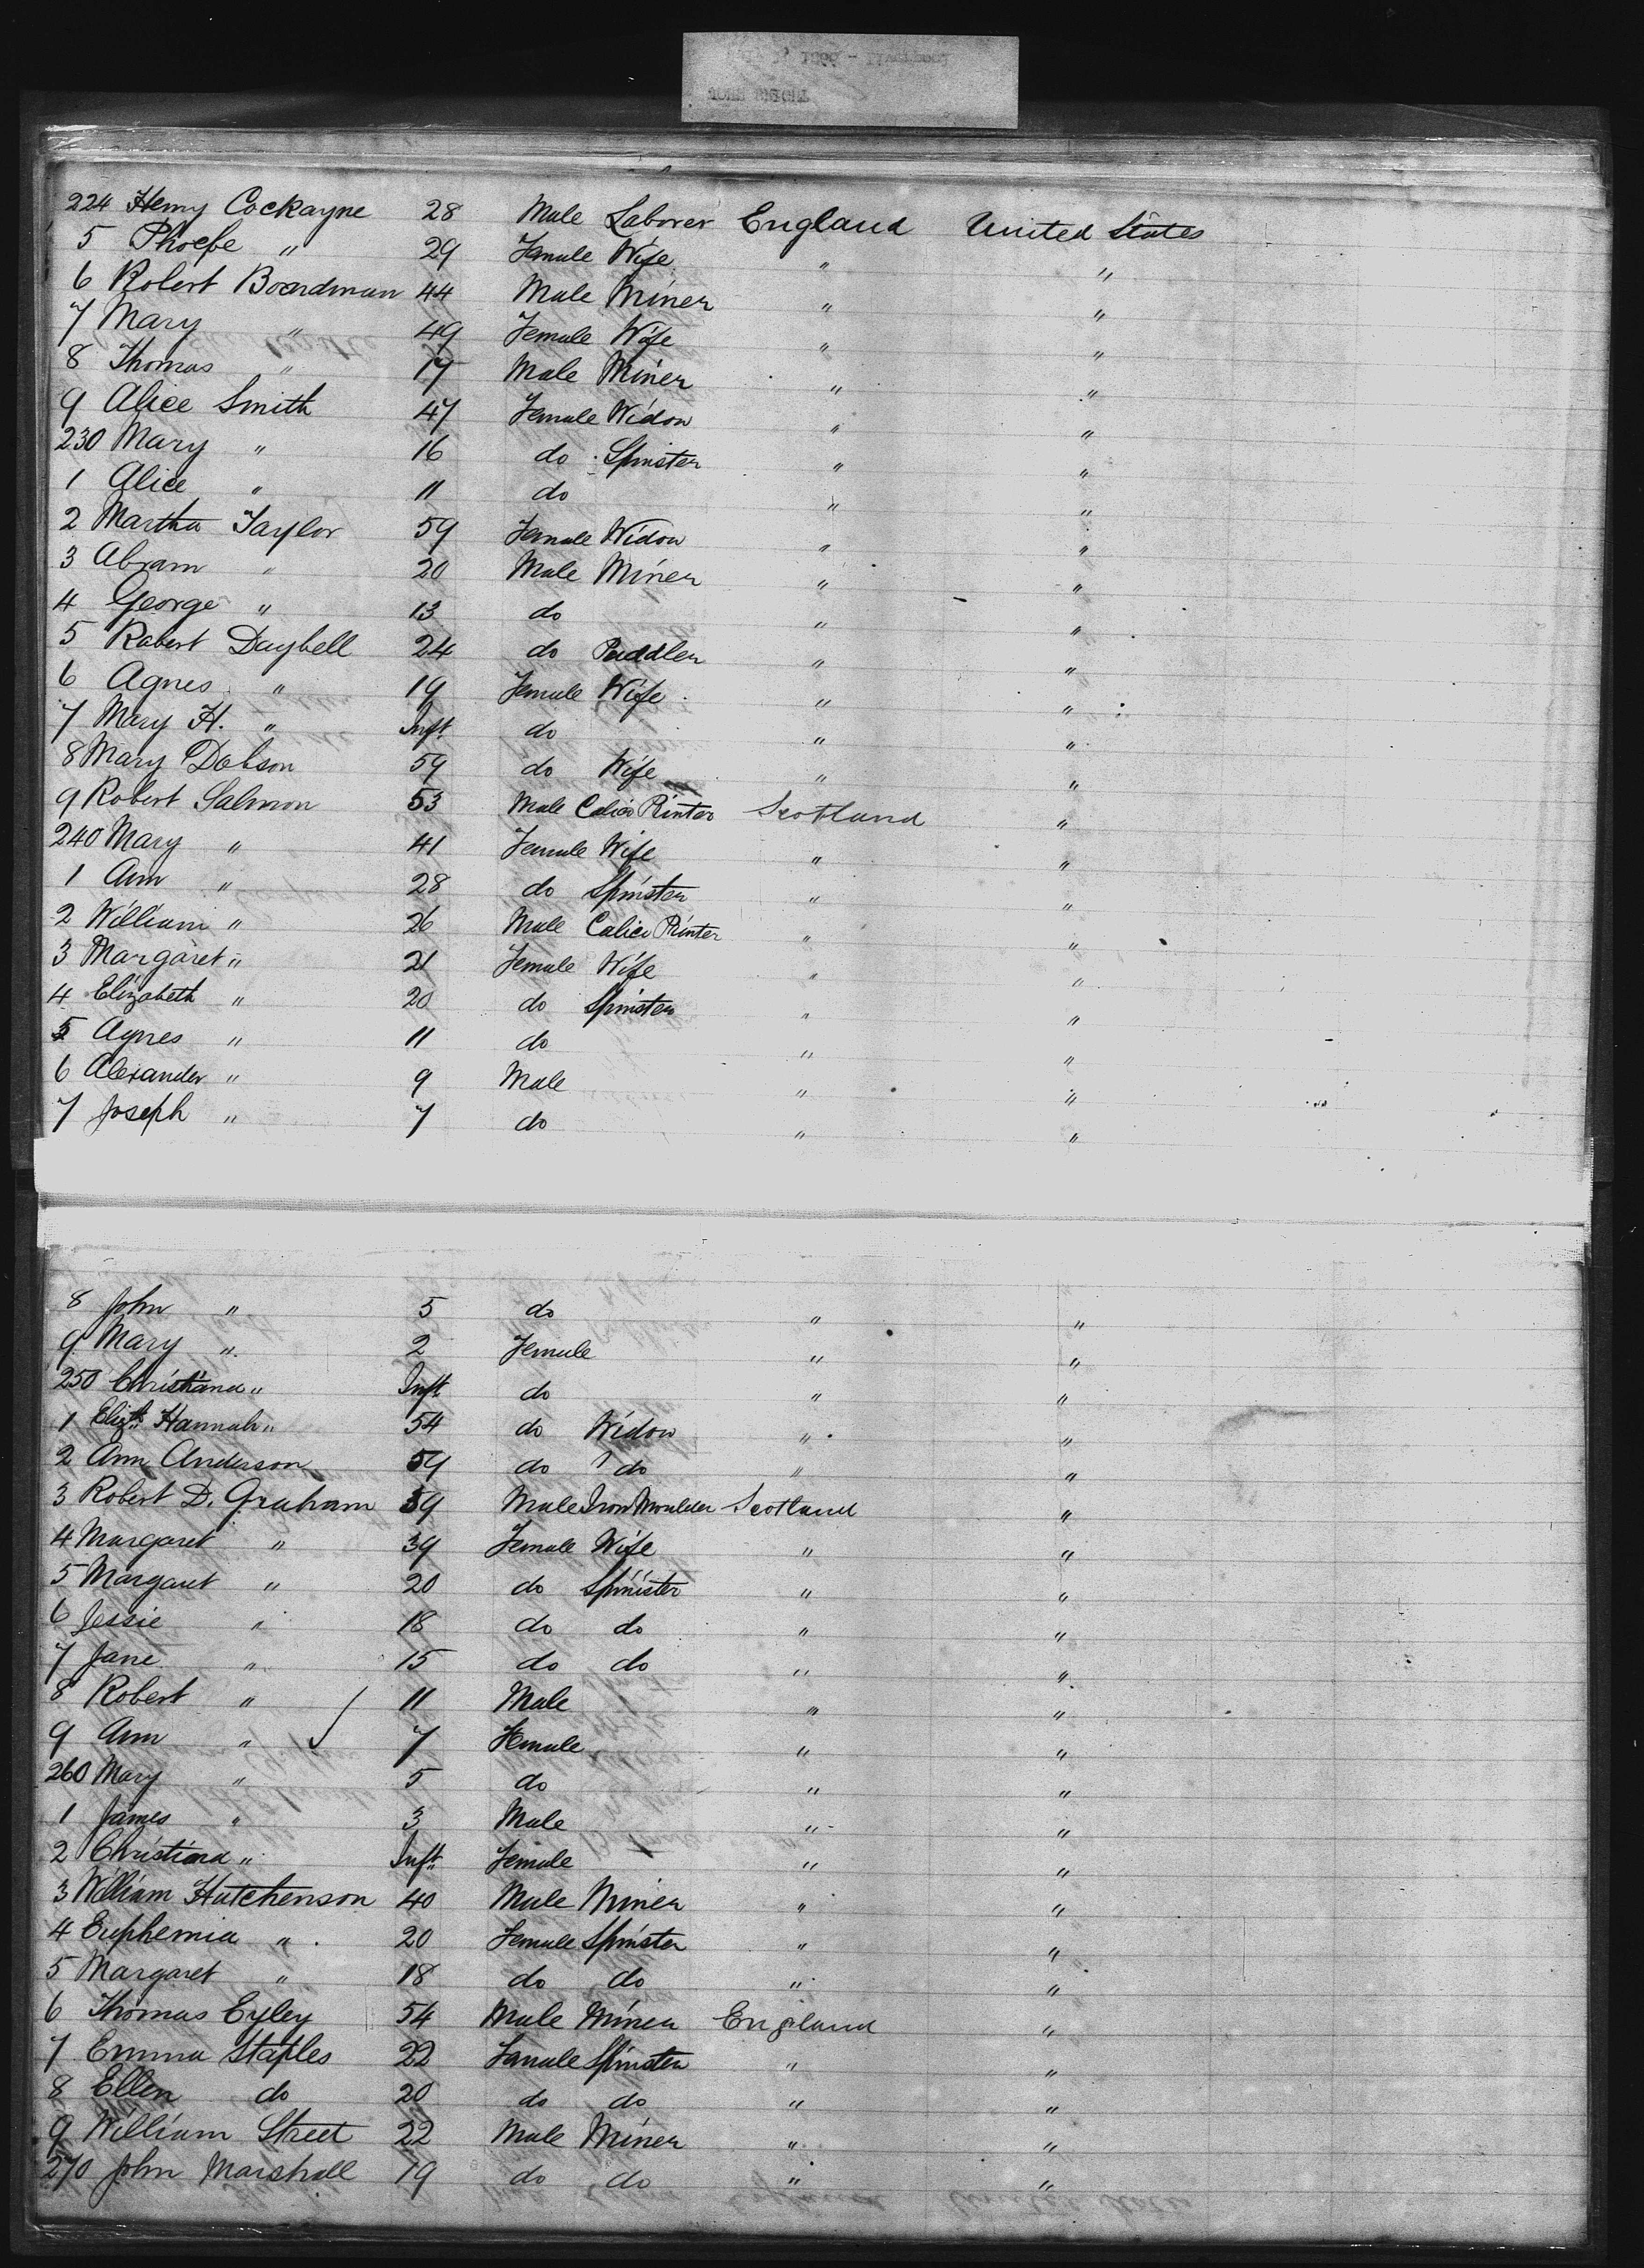 1866 - Liverpool
JOHN BRIGHT
224 Henry Cockayne 28 Male Laborer England United States
5 Phoebe " 29 Female Wife " "
6 Robert Boardman 44 Male Miner " "
7 Mary " 49 Female Wife " "
8 Thomas " 17 Male Miner " "
9 Alice Smith 47 Female Widow " "
230 Mary " 16 do Spinster " "
1 Alice " 11 do " "
2 Martha Taylor 59 Female Widow " "
3 Abram " 20 Male Miner " "
4 George " 13 do " "
5 Robert Daybell 24 do Puddler " "
6 Agnes " 19 Female Wife " "
7 Mary H. " Inft do " "
8 Mary Dobson 59 do Wife " "
9 Robert Salmon 53 Male Calico Printer Scotland "
240 Mary " 41 Female Wife " "
1 Ann " 28 do Spinster " "
2 William " 26 Male Calico Printer " "
3 Margaret " 21 Female Wife " "
4 Elizabeth " 20 do Spinster " "
5 Agnes " 11 do " "
6 Alexander " 9 Male " "
7 Joseph " 7 do " "
8 John " 5 do " "
9 Mary " 2 Female " "
250 Christiana " Inft do " "
1 Elizth Hannah " 54 do Widow " "
2 Ann Anderson 59 do do " "
3 Robert D. Graham 39 Male Iron Moulder Scotland "
4 Margaret " 39 Female Wife " "
5 Margaret " 20 do Spinister " "
6 Jessie " 18 do do " "
7 Jane " 15 do do " "
8 Robert " 11 Male " "
9 Ann " 7 Female " "
260 Mary " 5 do " "
1 James " 3 Male " "
2 Christiana " Inft Female " "
3 William Hutchenson 40 Male Miner " "
4 Euphemia " 20 Female Spinster " "
5 Margaret " 18 do do " "
6 Thomas Eyley 54 Male Miner England "
7 Emma Staples 22 Female Spinster " "
8 Ellen do 20 do do " "
9 William Street 22 Male Miner " "
270 John Marshall 19 do do " "